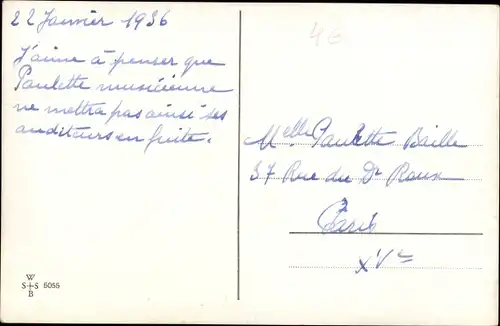 22 Janvier 1936
J'aime à penser que
Paulette musicienne
ne mettra pas ainsi ses
auditeurs en fuite.
4€
Melle Paulette Baille
37 Rue du Dr Roux
Paris
XVe
W
S+S 5055
B